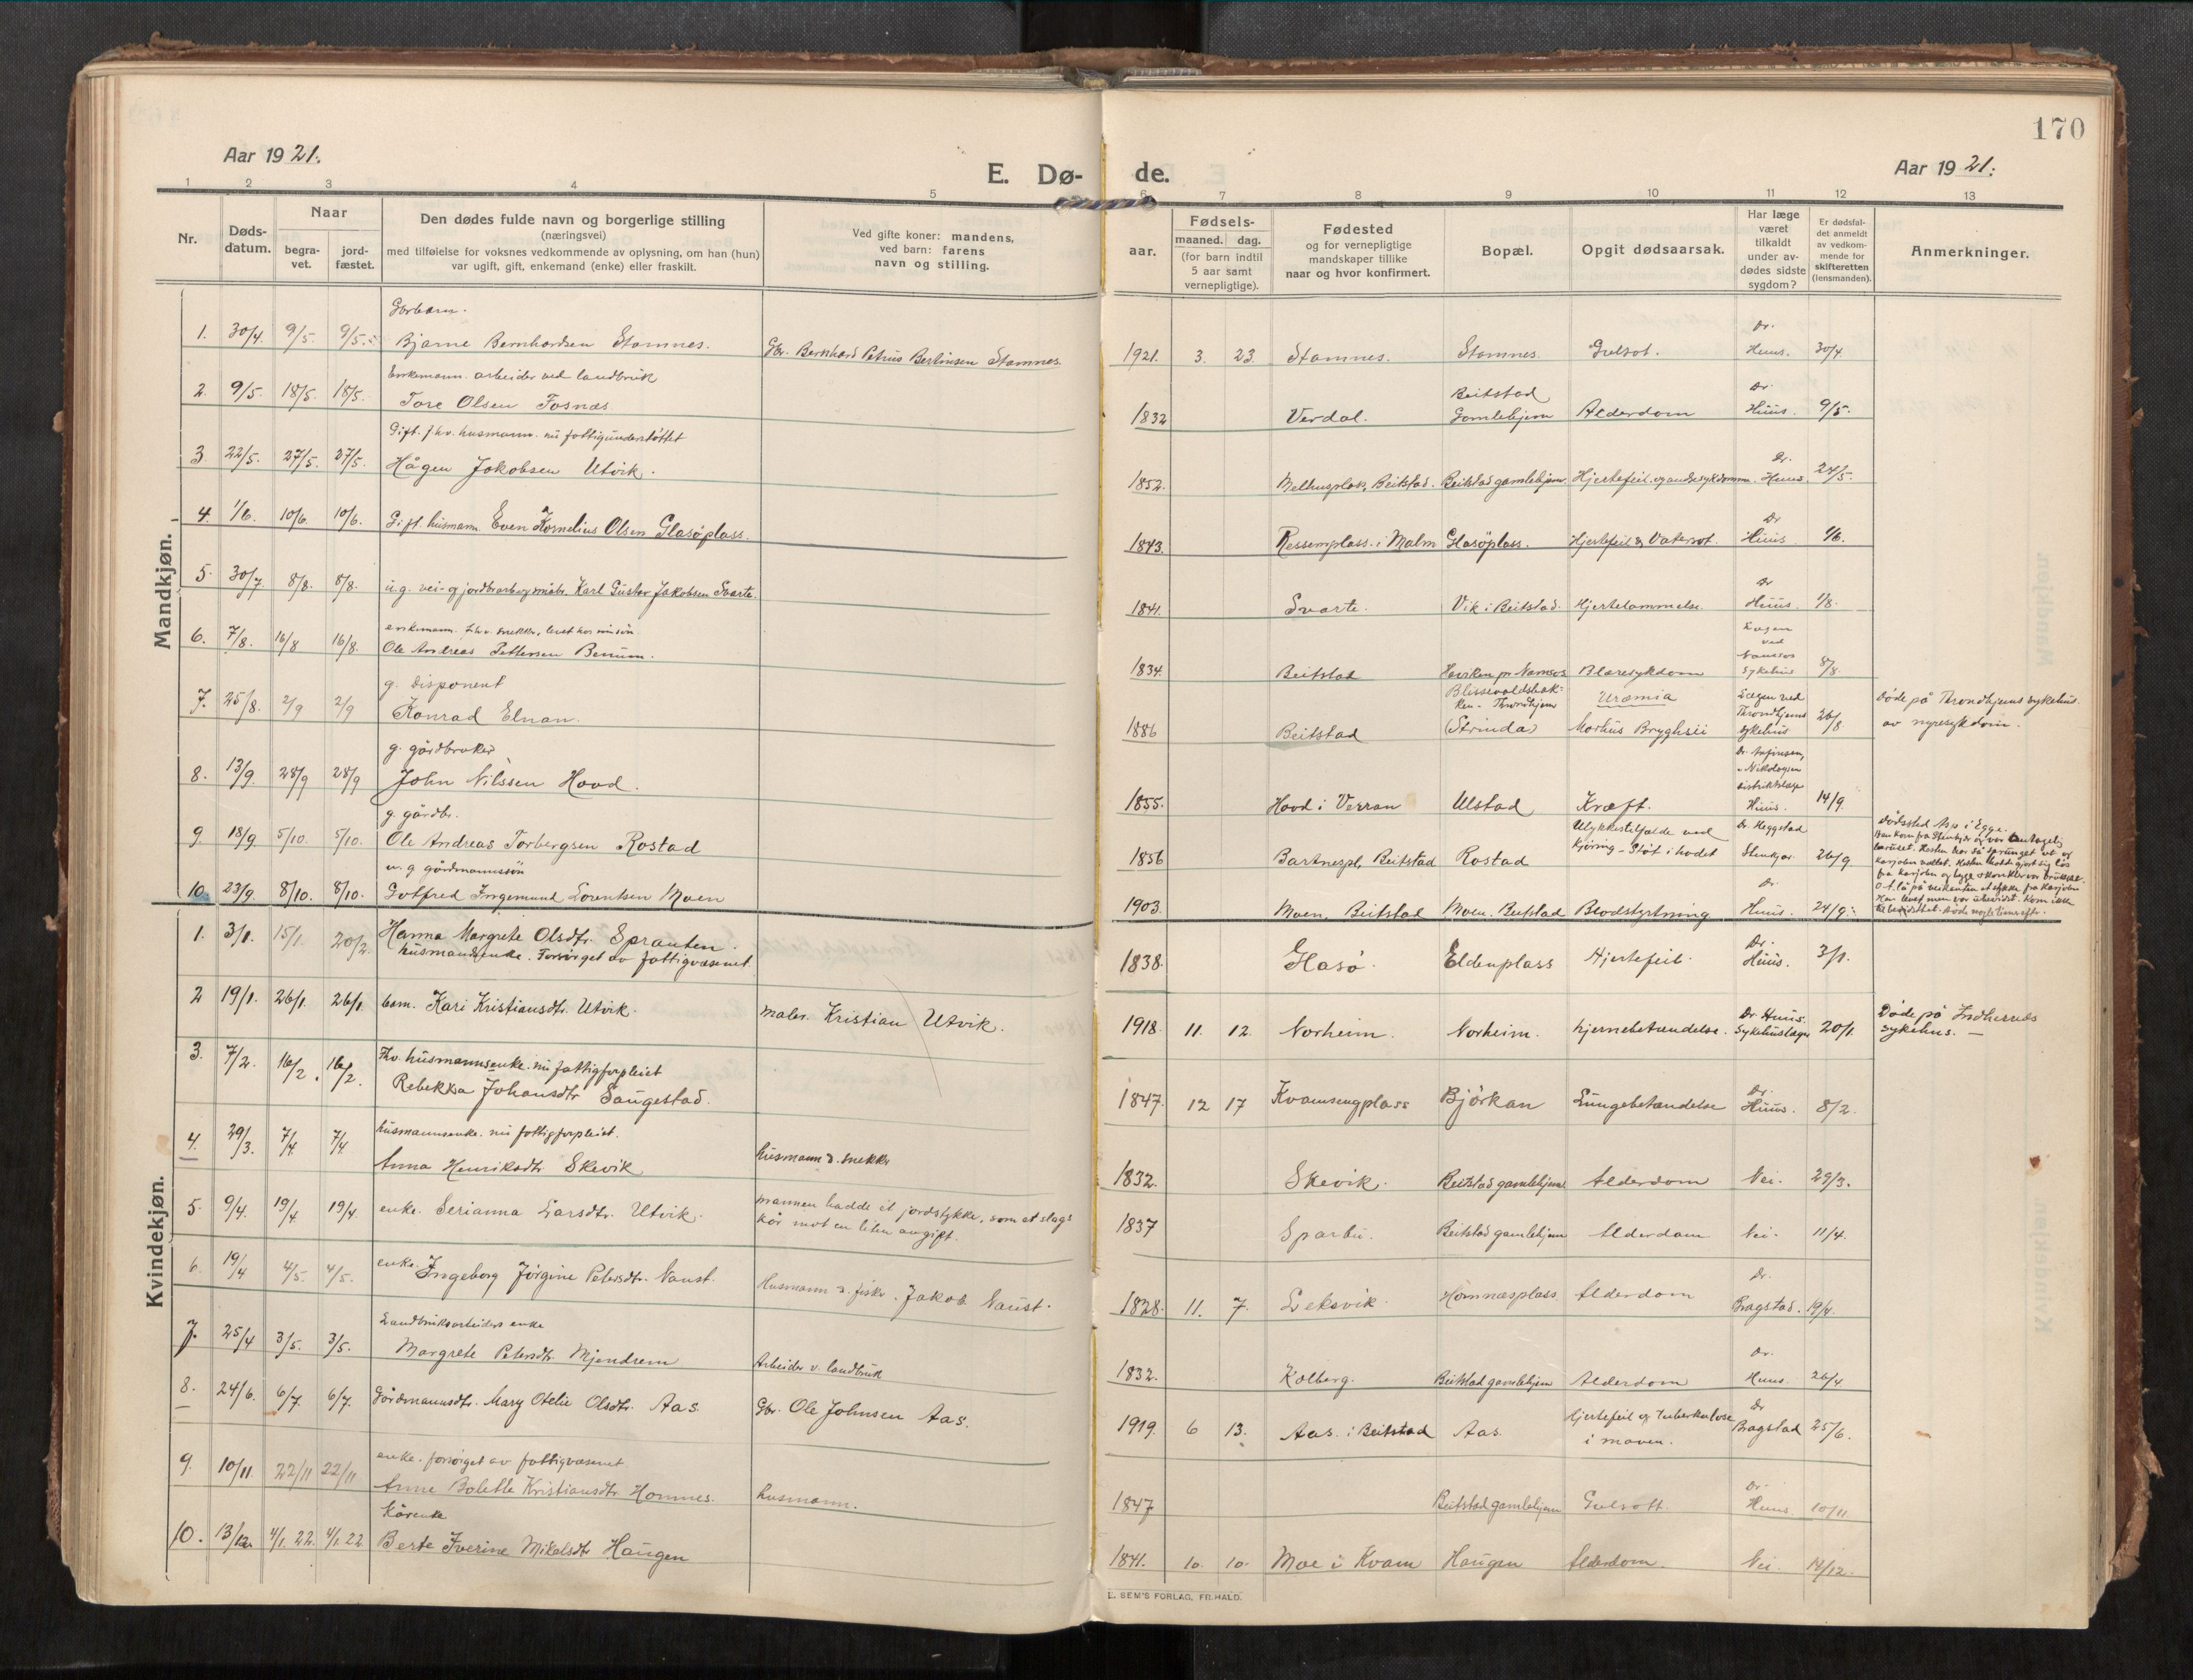 170
Aar 1921.
E. Dø-
de.
Aar 1921.
1 2 3 4 5 6 7 8 9 10 11 12 13
Nr.
Døds-
datum.
Naar
begra-
vet.
jord-
fæstet.
Den dødes fulde navn og borgerlige stilling
(næringsvei)
med tilføielse for voksnes vedkommende av oplysning, om han (hun)
var ugift, gift, enkemand (enke) eller fraskilt.
Ved gifte koner: mandens,
ved barn: farens
navn og stilling.
Fødsels-
aar.
maaned.
dag.
(for barn indtil
5 aar samt
vernepligtige).
Fødested
og for vernepligtige
mandskaper tillike
naar og hvor konfirmert.
Bopæl.
Opgit dødsaarsak.
Har læge
været
tilkaldt
under av-
dødes sidste
sygdom?
Er dødsfal-
det anmeldt
av vedkom-
mende for
skifteretten
(lensmanden).
Anmerkninger.
Mandkjøn.
Gbrbarn.
1. 30/4. 9/5. 9/5. Bjarne Bernhardsen Stamnes. Gbr. Bernhard Petrus Bertinsen Stamnes. 1921. 3. 23. Stamnes. Stamnes. Gulsot. Dr. Huus. 30/4
Enkemann. arbeider ved landbruk
2. 9/5. 18/5. 18/5. Tore Olsen Fosnæs. 1832 Verdal. Beitstad Gamlehjem Alderdom Dr. Huus. 9/5.
Gift. fhv. husmann. nu fattigunderstøttet
3. 22/5. 27/5. 27/5. Hågen Jakobsen Utvik. 1852. Melhusplas, Beitstad. Beitstad gamlehjem. Hjertefeil og andre sykdommer. Dr. Huus. 24/5.
4. 1/6. 10/6. 10/6. Gift. husmann. Even Kornelius Olsen Glasøplass. 1843. Ressemplass i Malm Glasøplass. Hjertefeil & Vatersot. Dr Huus 1/6.
5. 30/7 8/8. 8/8. u.g. vei- og jordbrarb Karl Gustav Jakobsen Svarte. 1841. Svarte. Vik i Beitstad. Hjertelammelse. Dr Huus. 1/8.
enkemann. fhv. snekker, levet hos sin søn.
6. 7/8. 16/8 16/8. Ole Andreas Pettersen Benum. 1834. Beitstad Haviken pr Namsos Blæresykdom Lægen ved Namsos Sykehus 8/8.
g. disponent
7. 25/8. 2/9 2/9 Konrad Elnan. 1886 Beitstad Blissevoldsbak-
ken - Trondhjem
(Strinda) Uræmia
Morbus Brightii Lægen ved Trondhjems sykehus 26/8. Døde på Trondhjems sykehus.
av nyresykdom.
g. gårdbruker
8. 13/9. 28/9 28/9 John Nilssen Hovd. 1855. Hovd i Verran Ulstad Kræft. Dr. Anfinsen,
„ Nikolaysen
distriktslæge
Huus. 14/9.
g. gårdbr.
9. 18/9. 5/10. 5/10. Ole Andreas Torbergsen Rostad 1856 Bartnespl. Beitstad Rostad Ulykkestilfælde ved
kjøring - Støt i hodet Dr. Heggstad
Stenkjær 26/9 Dødssted Asp i Egge.
Han kom fra Stenkjær og var antagelig
beruset. Hesten har så sprunget ut og
karjolen væltet. Hesten hadde gjort sig løs
fra karjolen og begge skonkler var brukket.
O.T. lå på veikanten et stykke fra karjolen
Han levet men var ubevidst. Kom ikke
til bevidsthet. Døde nogle timer efter.
u. g gårdmannssøn
10. 23/9. 8/10. 8/10. Gotfred Ingemund Lorentsen Moen 1903. Moen, Beitstad Moen. Beitstad Blodstyrtning Dr. Huus. 24/9.
Kvindekjøn.
1. 3/1. 15/1. 20/2. Hanna Margrete Olsdtr. Sprauten.
husmandsenke. Forsørget av fattigvæsenet 1838. Glasø. Eldenplass Hjertefeil. Dr. Huus. 3/1.
2 19/1. 26/1. 26/1. barn. Kari Kristiansdtr. Utvik. maler. Kristian Utvik. 1918. 11. 12. Norheim. Norheim. hjernebetændelse. Dr. Huus.
Sykehuslæger 20/1. Døde på Indherreds
sykehus. —
Fhv. husmannsenke. nu fattigforpleiet
3. 7/2. 16/2. 16/2. Rebekka Johansdtr Saugestad. 1847. 12 17 Kvamsengplass Bjørkan Lungebetændelse Dr. Huus. 8/2.
husmannsenke. nu fattigforpleiet.
4. 29/3. 7/4 7/4 Anna Henriksdtr Skevik husmann & snekker 1832. Skevik. Beitstad gamlehjem Alderdom Nei. 29/3.
5. 9/4. 19/4 19/4 enke. Serianna Larsdtr. Utvik. mannen hadde et jordstykke, som et slags
kår mot en liten avgift. 1837 Sparbu. Beitstad gamlehjem Alderdom Nei. 11/4.
6. 19/4 4/5. 4/5. enke. Ingeborg Jørgine Petersdtr. Naust. Husmann & fisker. Jakob Naust. 1828. 11. 7. Leksvik. Homnæsplass Alderdom Dr. Bragstad. 19/4.
Landbruksarbeiders enke
7. 25/4 3/5. 3/5. Margrete Petersdtr. Mjendrem Arbeider v. landbruk 1832. Kolberg. Beitstad gamlehjem Alderdom Dr. Huus. 26/4
8. 24/6. 6/7 6/7. Gårdmannsdtr. Mary Otelie Olsdtr. Aas. Gbr. Ole Johnsen Aas. 1919. 6 13. Aas. i Beitstad Aas. Hjertefeil og Tuberkulose
i maven. Dr Bragstad 25/6.
enke. forsørget av fattigvæsenet
9. 10/11. 22/11 22/11 Anne Bolette Kristiansdtr Homnes. husmann. 1847 Beitstad gamlehjem Gulsott. Dr. Huus. 10/11
Kårenke
10. 13/12 4/1.22. 4/1.22 Berte Iverine Mikalsdtr Haugen 1841. 10. 10. Moe i Kvam Haugen Alderdom. Nei. 14/12.
E. SEM'S FORLAG, FR.HALD.